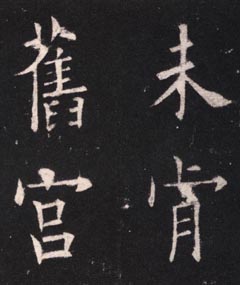 未肯
舊宮